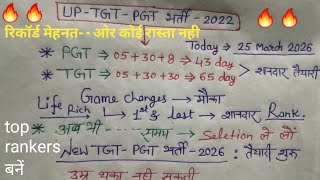 UP-TGT-PGT भर्ती-2022
रिकॉर्ड मेहनत--और कोई रास्ता नही
Today → 25 March 2026
* PGT → 05+30+8 → 43 day
* TGT → 05+30+30 → 65 day
> शानदार तैयारी
Game changes → मौका
Life Rich → 1st & last → शानदार Rank.
* अब भी ------ समय → Seletion ले लो
top
rankers
बनें
New TGT-PGT भर्ती-2026 : तैयारी शुरू
उम्र थका नही सकती